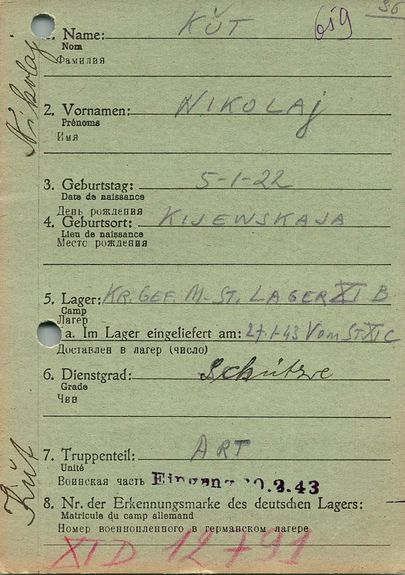 36
619
1. Name: KŬT
Nom
Фамилия
Nikolaj
2. Vornamen: NIKOLAJ
Prénoms
Имя
3. Geburtstag: 5-1-22
Date de naissance
День рождения
4. Geburtsort: KIJEWSKAJA
Lieu de naissance
Место рождения
5. Lager: KR. GEF. M-ST. LAGER XI B
Camp
Лагер
a. Im Lager eingeliefert am: 27.1.43 Vom ST XI C
Доставлен в лагер (число)
6. Dienstgrad: Schütze
Grade
Чин
7. Truppenteil: ART
Unité
Воинская часть Eingang 3.43
Kŭt
8. Nr. der Erkennungsmarke des deutschen Lagers:
Matricule du camp allemand
Номер военнопленного в германском лагере
XI D 12791